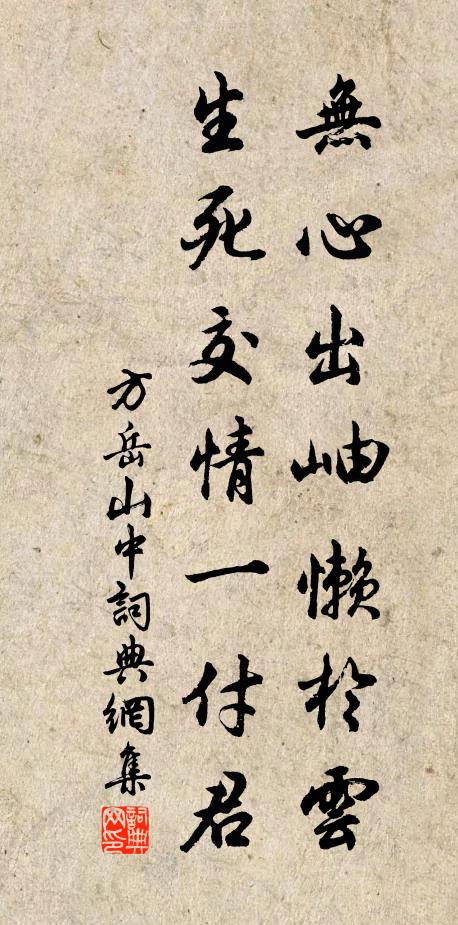 無心出岫懶於雲
生死交情一付君
方岳山中詞典網集
詞典
网印